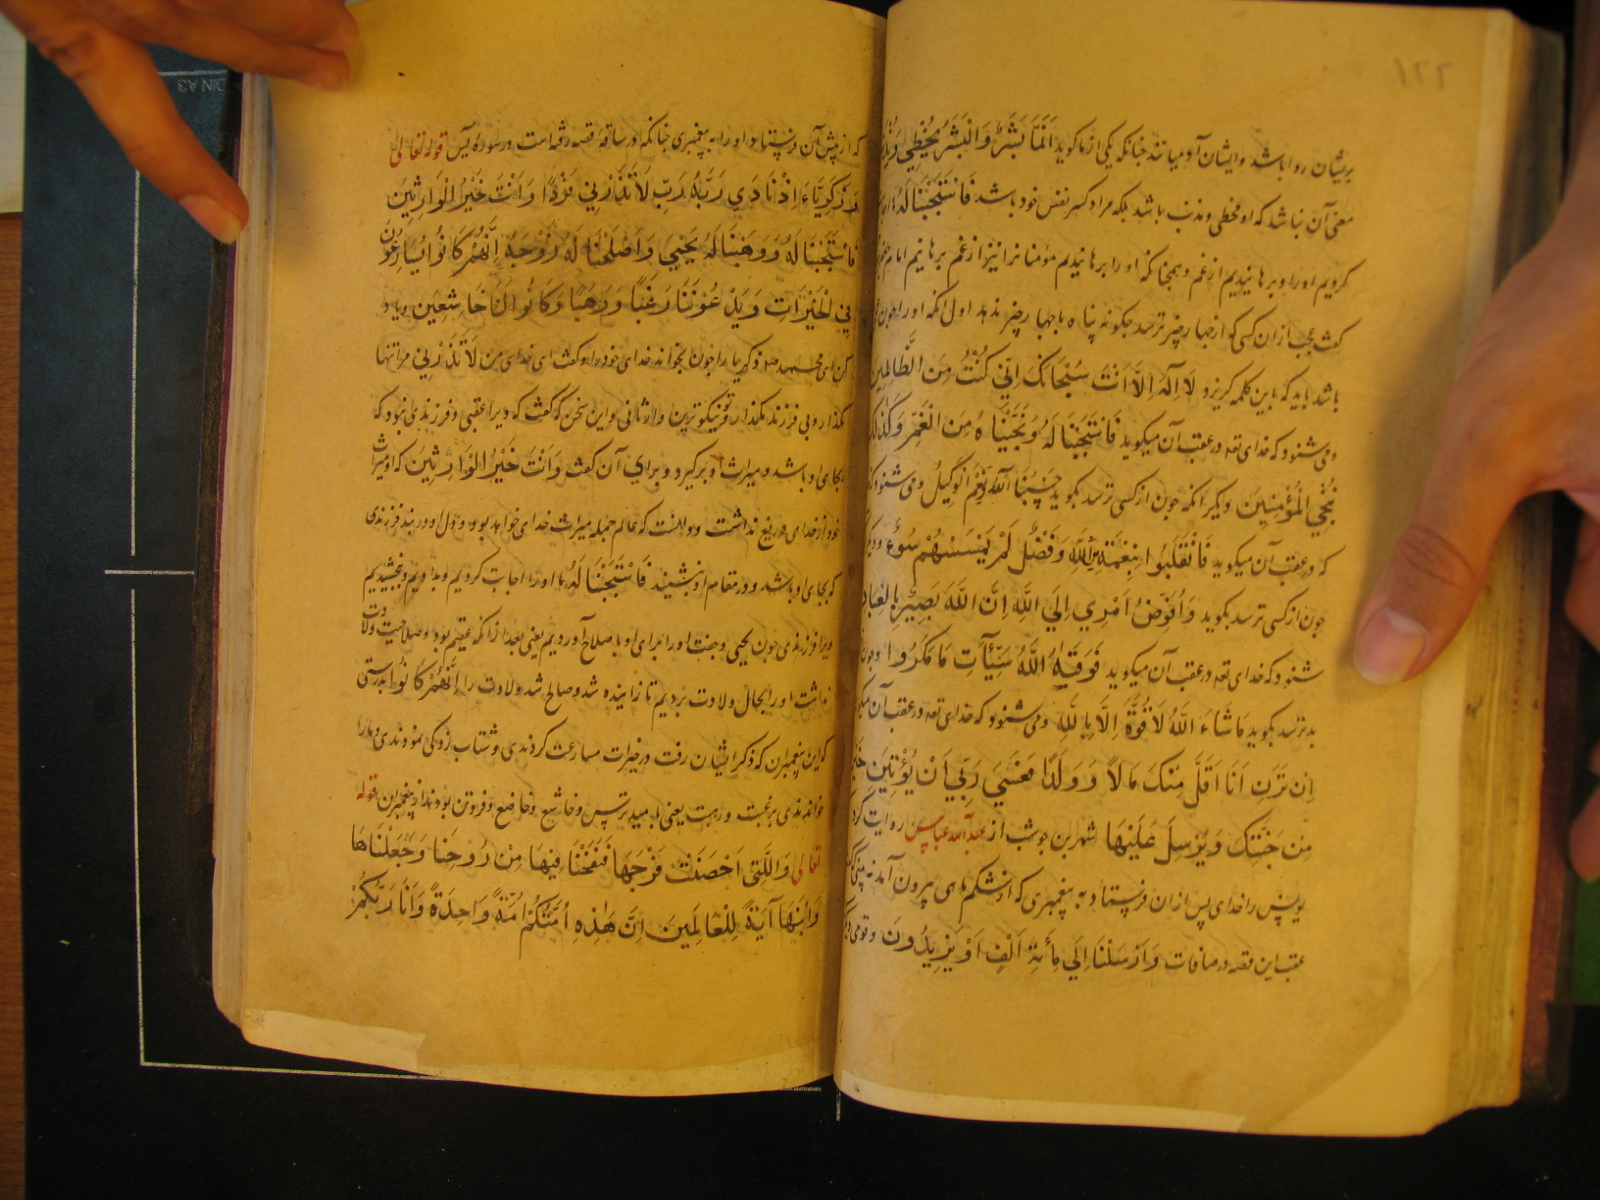 ۱۲۲
بریشان روا باشد و ایشان آدمیانند چنانکه یکی از ما کوید اَنَمَّا بَشَرٌ وَالْبَشَرُ يُخْطِي
معنی آن نباشد که او مخطی و مذنب باشد بلکه مراد کسر نفس خود باشد فَاسْتَجَبْنَا لَهُ
کردیم او را و برهانیدیم از غم و همچنانکه او را برهانیدیم مؤمنانرا نیز از غم برهانیم امام
کفت عجب از ان کسی کو از چهار چیز ترسد چکونه پناه با چهار چیز ندهد اول آنکه او را چون
باشد باید که باین کلمه کریزد لَا اِلَهَ اِلَّا اَنْتَ سُبْحَانَكَ اِنِّي كُنْتُ مِنَ الظَّالِمِينَ
ومی شنود که خدای تعه در عقب آن میکوید فَاسْتَجَبْنَا لَهُ وَنَجَّيْنَاهُ مِنَ الْغَمِّ وَكَذَلِكَ
نُنْجِي الْمُؤْمِنِينَ دیکر آنکه چون از کسی ترسد بکوید حَسْبُنَا اللَّهُ وَنِعْمَ الْوَكِيلُ ومی شنود که
که در عقب آن میکوید فَانْقَلَبُوا بِنِعْمَةٍ مِنَ اللَّهِ وَفَضْلٍ لَمْ يَمْسَسْهُمْ سُوءٌ
چون از کسی ترسد بکوید وَاُفَوِّضُ اَمْرِي اِلَي اللَّهِ اِنَّ اللَّهَ بَصِيرٌ بِالْعِبَادِ
شنود که خدای تعه در عقب آن میکوید فَوَقَيهُ اللَّهُ سَيِّئَاتِ مَا مَكَرُوا و چون
بد ترسد بکوید مَا شَاءَ اللَّهُ لَا قُوَّةَ اِلَّا بِاللَّهِ ومی شنود که خدای تعه در عقب آن
اِنْ تَرَنِ اَنَا اَقَلَّ مِنْكَ مَالًا وَوَلَدًا فَعَسَي رَبِّي اَنْ يُؤْتِيَنِ
مِنْ جَنَّتِكَ وَيُرْسِلَ عَلَيْهَا شهر بن حوشب از عبدالله عباس روایت کرد
یونس را خدای پس از ان فرستاد به پیغمبری که از شکم ماهی بیرون آمد نه
عقب این قصه در صافات وَاَرْسَلْنَا اِلَي مِائَةِ اَلْفٍ اَوْ يَزِيدُونَ و قومی
که از پیش آن فرستاد او را به پیغمبری چنانکه در ساقه قصه رفته است در سوره یس قوله تعالی
وَزَكَرِيَّاءَ اِذْ نَادَي رَبَّهُ رَبِّ لَا تَذَرْنِي فَرْدًا وَاَنْتَ خَيْرُ الْوَارِثِينَ
فَاسْتَجَبْنَا لَهُ وَوَهَبْنَا لَهُ يَحْيَي وَاَصْلَحْنَا لَهُ زَوْجَهُ اِنَّهُمْ كَانُوا يُسَارِعُونَ
فِي الْخَيْرَاتِ وَيَدْعُونَنَا رَغَبًا وَرَهَبًا وَكَانُوا لَنَا خَاشِعِينَ و یاد
کن ای محمد زکریا را چون بخواند خدای خود را و کفت ای خدای من لَا تَذَرْنِي مرا تنها
مکذار و بی فرزند مکذار و تو نیکوترین وارثانی و این سخن که کفت که ویرا عقبی و فرزندی نبود که
بجای او باشد و میراث او برکیرد و برای آن کفت وَاَنْتَ خَيْرُ الْوَارِثِينَ که او میراث
خود از خدای دریغ نداشت و دانست که عالم جمله میراث خدای خواهد بود و دل او در بند فرزندی
که بجای او باشد و در مقام او بنشیند فَاسْتَجَبْنَا لَهُ ما او را اجابت کردیم و بدادیم و بخشیدیم
ویرا فرزندی چون یحیی و جفت او را برای او باصلاح آوردیم یعنی بعد از انکه عقیم بود و صلاحیت ولادت
نداشت او را بحال ولادت بردیم تا زاینده شد و صالح شد ولادت را اِنَّهُمْ كَانُوا بدرستی
که این پیغمبران که ذکر ایشان رفت در خیرات مسارعت کردندی و شتاب زدکی نمودندی و ما را
خواندندی برغبت و رهبت یعنی بامید و ترس و خاشع و خاضع و فروتن بودند این پیغمبران قوله
تعالی وَالَّتِي اَحْصَنَتْ فَرْجَهَا فَنَفَخْنَا فِيهَا مِنْ رُوحِنَا وَجَعَلْنَاهَا
وَابْنَهَا آيَةً لِلْعَالَمِينَ اِنَّ هَذِهِ اُمَّتُكُمْ اُمَّةً وَاحِدَةً وَاَنَا رَبُّكُمْ
DIN A3